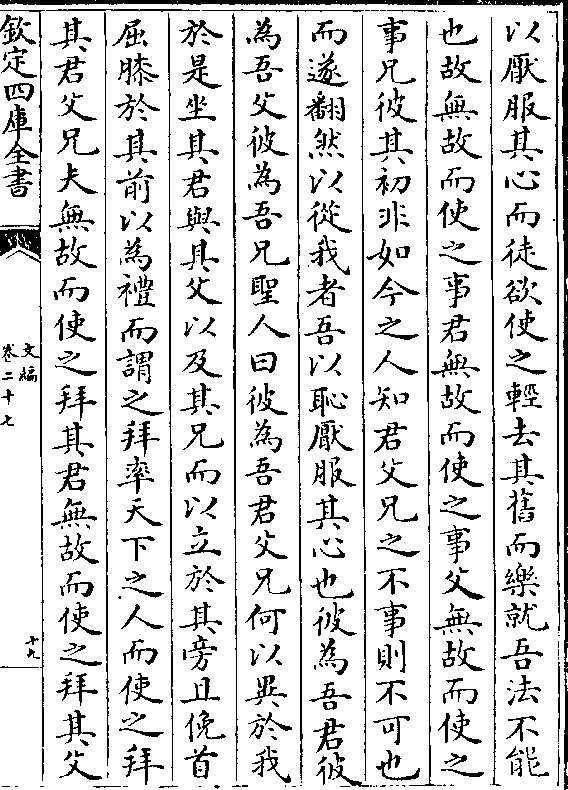 以厭服其心而徒欲使之輕去其舊而樂就吾法不能
也故無故而使之事君無故而使之事父無故而使之
事兄彼其初非如今之人知君父兄之不事則不可也
而遂翻然以從我者吾以恥厭服其心也彼為吾君彼
為吾父彼為吾兄聖人曰彼為吾君父兄何以異於我
於是坐其君與其父以及其兄而以立於其旁且俛首
屈膝於其前以為禮而謂之拜率天下之人而使之拜
其君父兄夫無故而使之拜其君無故而使之拜其父
欽定四庫全書
文編
卷二十七
十九